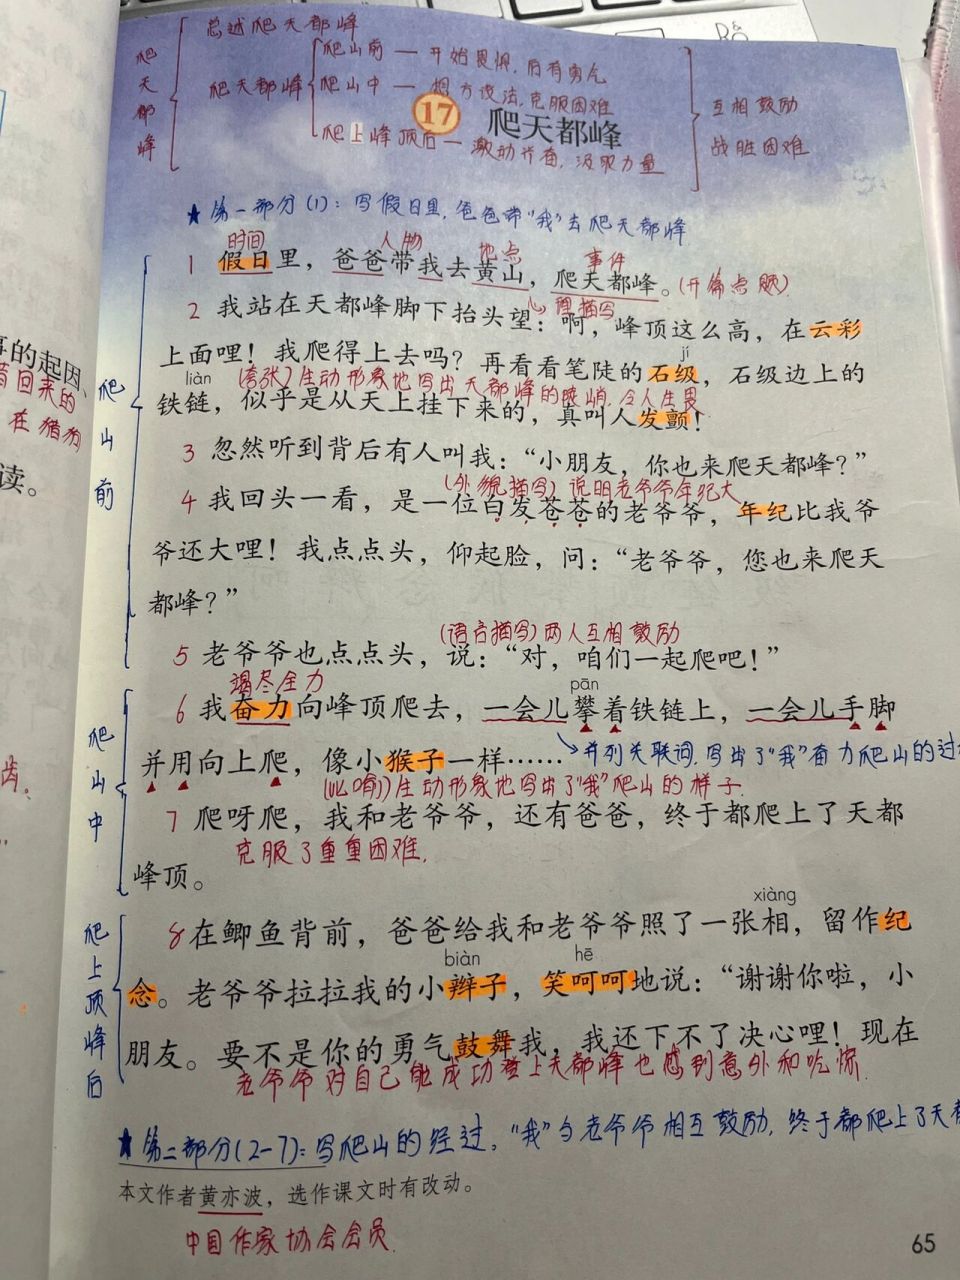 总述爬天都峰
爬天都峰
爬天都峰
爬山前 — 开始畏惧,后有勇气
爬山中 — 想方设法,克服困难
爬上峰顶后 — 激动兴奋,汲取力量
互相鼓励
战胜困难
17 爬天都峰
★ 第一部分(1):写假日里,爸爸带“我”去爬天都峰
时间 人物 地点 事件
1 假日里,爸爸带我去黄山,爬天都峰。(开篇点题)
心理描写
2 我站在天都峰脚下抬头望:啊,峰顶这么高,在云彩
上面哩!我爬得上去吗?再看看笔陡的石级,石级边上的
jí
liàn
(夸张)生动形象地写出天都峰的陡峭,令人生畏
铁链,似乎是从天上挂下来的,真叫人发颤!
3 忽然听到背后有人叫我:“小朋友,你也来爬天都峰?”
(外貌描写)说明老爷爷年纪大
4 我回头一看,是一位白发苍苍的老爷爷,年纪比我爷
爷还大哩!我点点头,仰起脸,问:“老爷爷,您也来爬天
都峰?”
爬山前
(语言描写)两人互相鼓励
5 老爷爷也点点头,说:“对,咱们一起爬吧!”
竭尽全力
pān
6 我奋力向峰顶爬去,一会儿攀着铁链上,一会儿手脚
并列关联词,写出了“我”奋力爬山的过
并用向上爬,像小猴子一样……
(比喻)生动形象地写出了“我”爬山的样子.
7 爬呀爬,我和老爷爷,还有爸爸,终于都爬上了天都
克服了重重困难.
峰顶。
爬山中
xiàng
8 在鲫鱼背前,爸爸给我和老爷爷照了一张相,留作纪
biàn hē
念。老爷爷拉拉我的小辫子,笑呵呵地说:“谢谢你啦,小
朋友。要不是你的勇气鼓舞我,我还下不了决心哩!现在
老爷爷对自己能成功登上天都峰也感到意外和吃惊.
爬上顶峰后
★ 第二部分(2-7):写爬山的经过,“我”与老爷爷相互鼓励,终于都爬上了天都
本文作者黄亦波,选作课文时有改动。
中国作家协会会员.
65
的起因、
回来的
在猎狗
读。